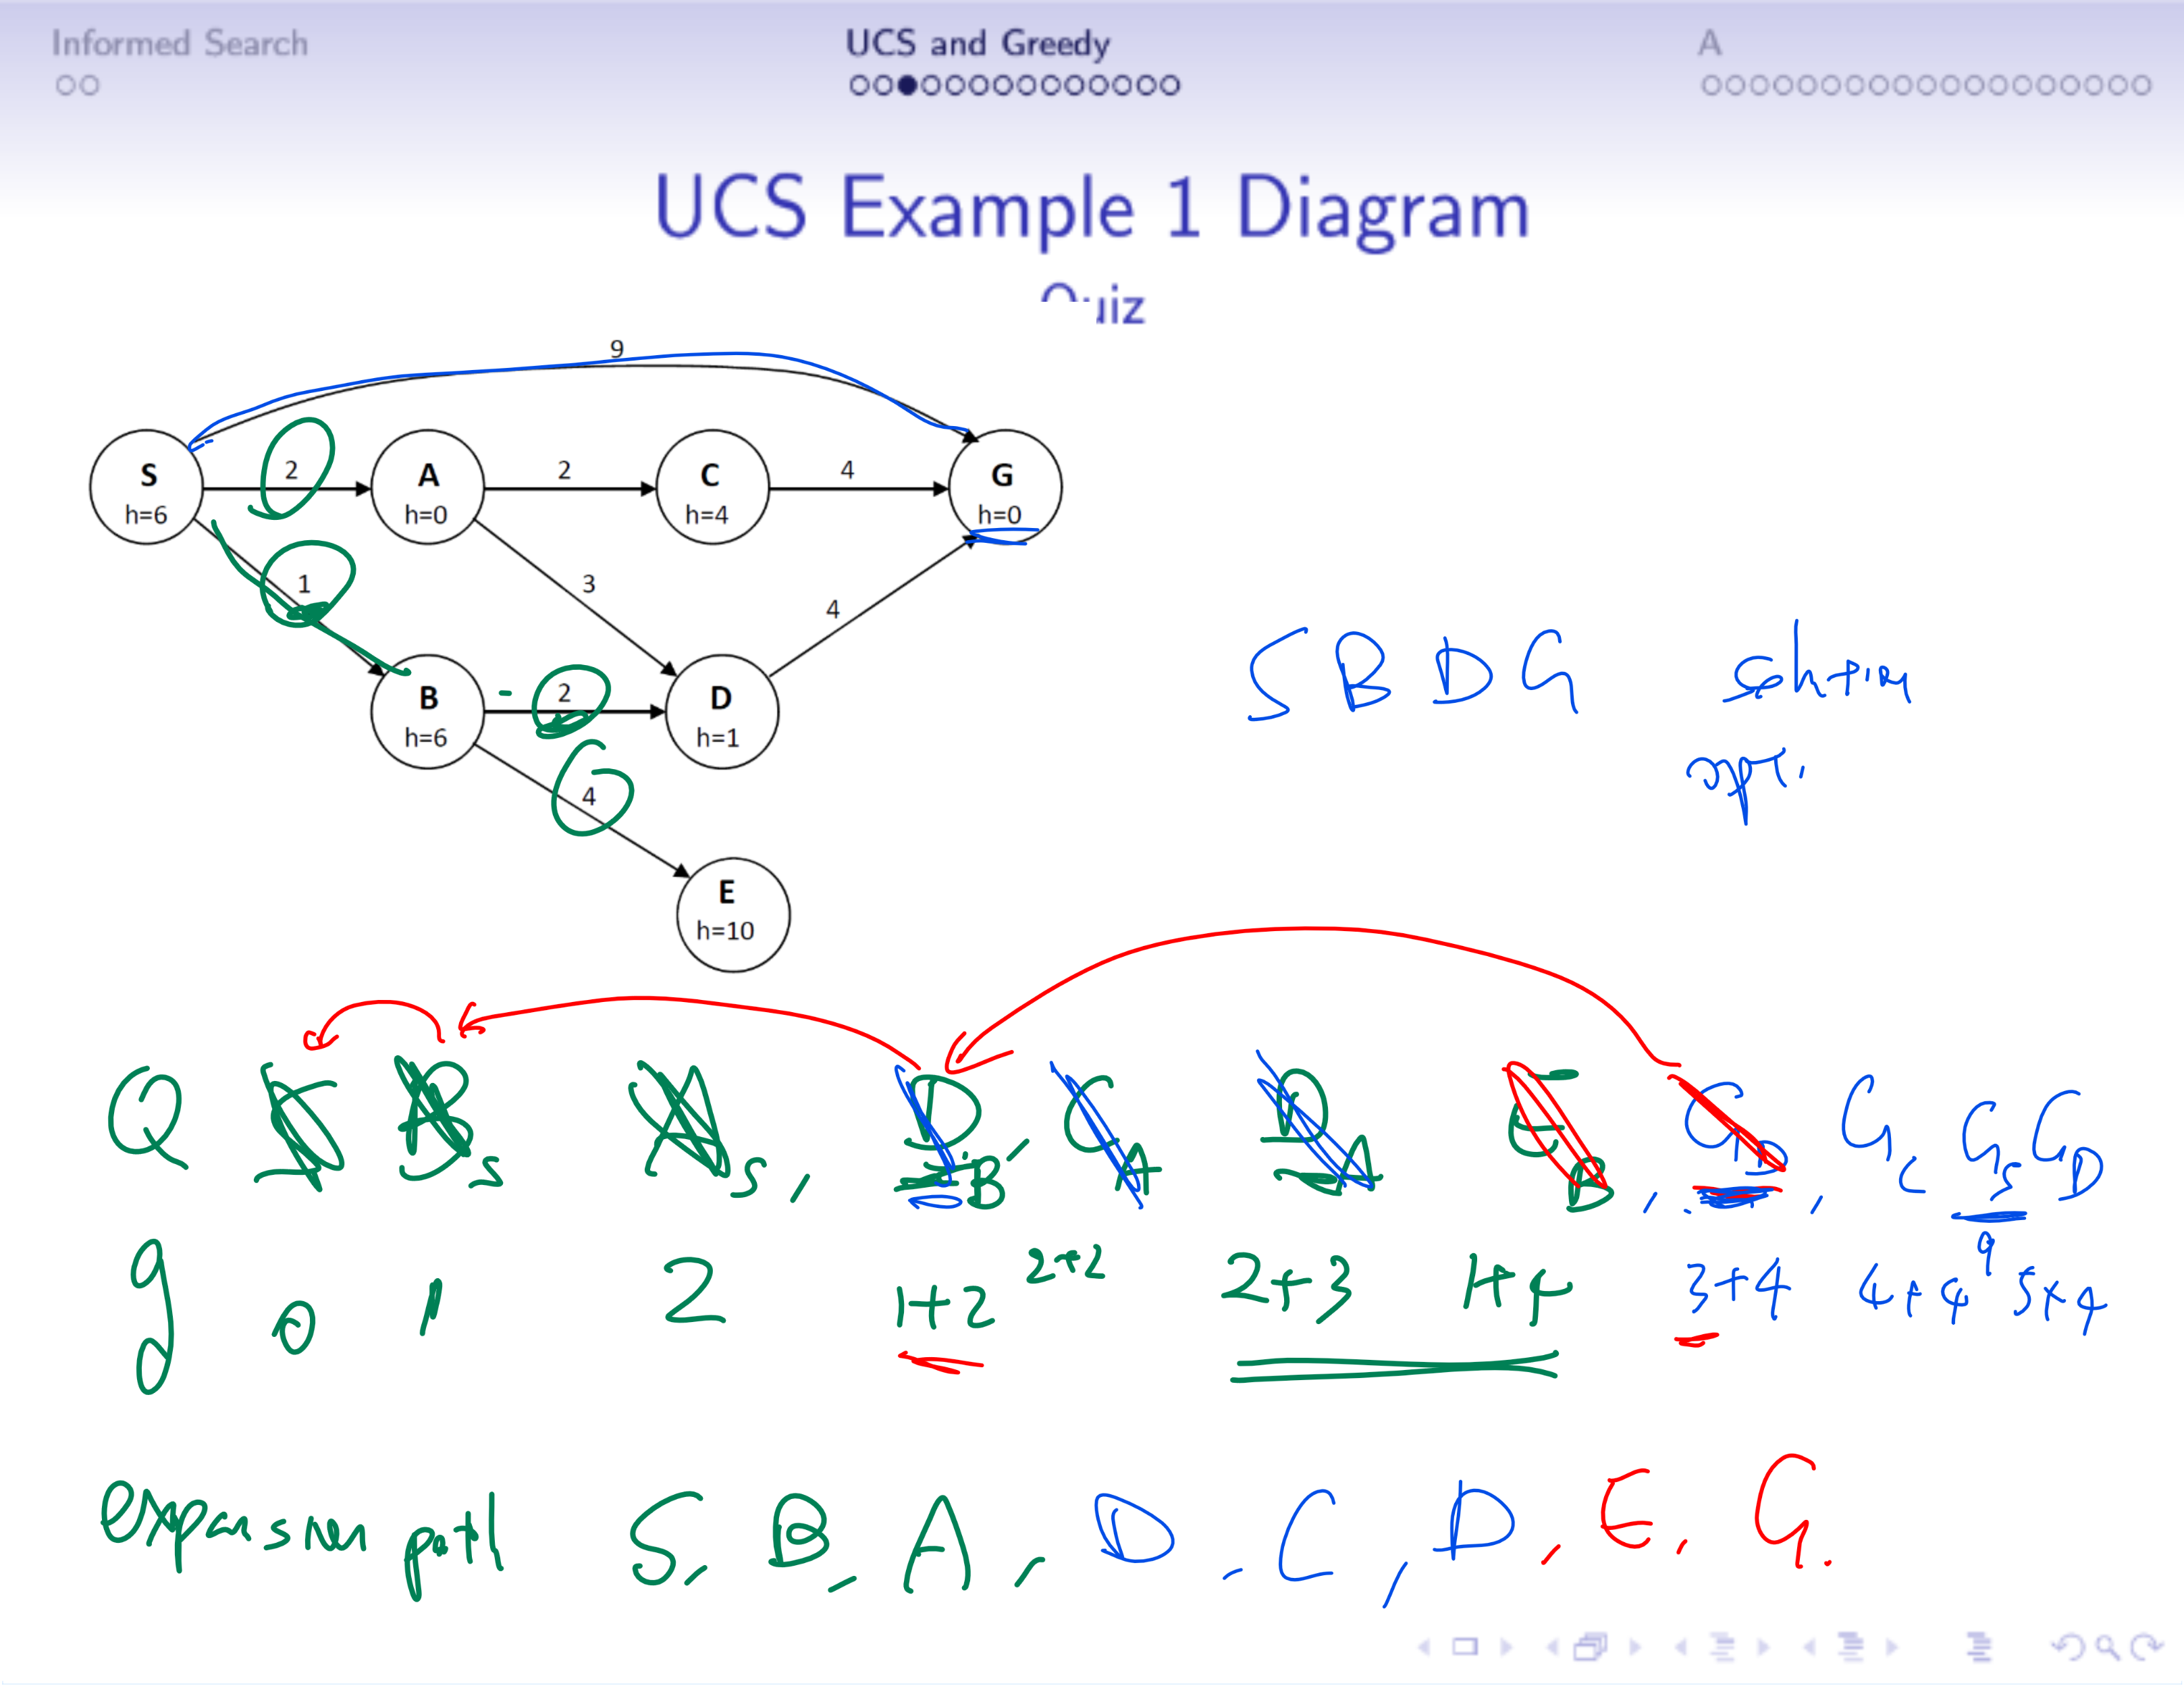 Informed Search
UCS and Greedy
A
UCS Example 1 Diagram
Quiz
9
S
h=6
2
A
h=0
2
C
h=4
4
G
h=0
1
3
4
B
h=6
2
D
h=1
4
E
h=10
S B D G solution
opt.
Q S B_S A_S, D_B, C_A D_A E_B, G_D, G_C G_S G_D
g 0 1 2 1+2 2+2 2+3 1+4 3+4 4+4 9 5+4
expansion path S, B, A, D, C, D, E, G.